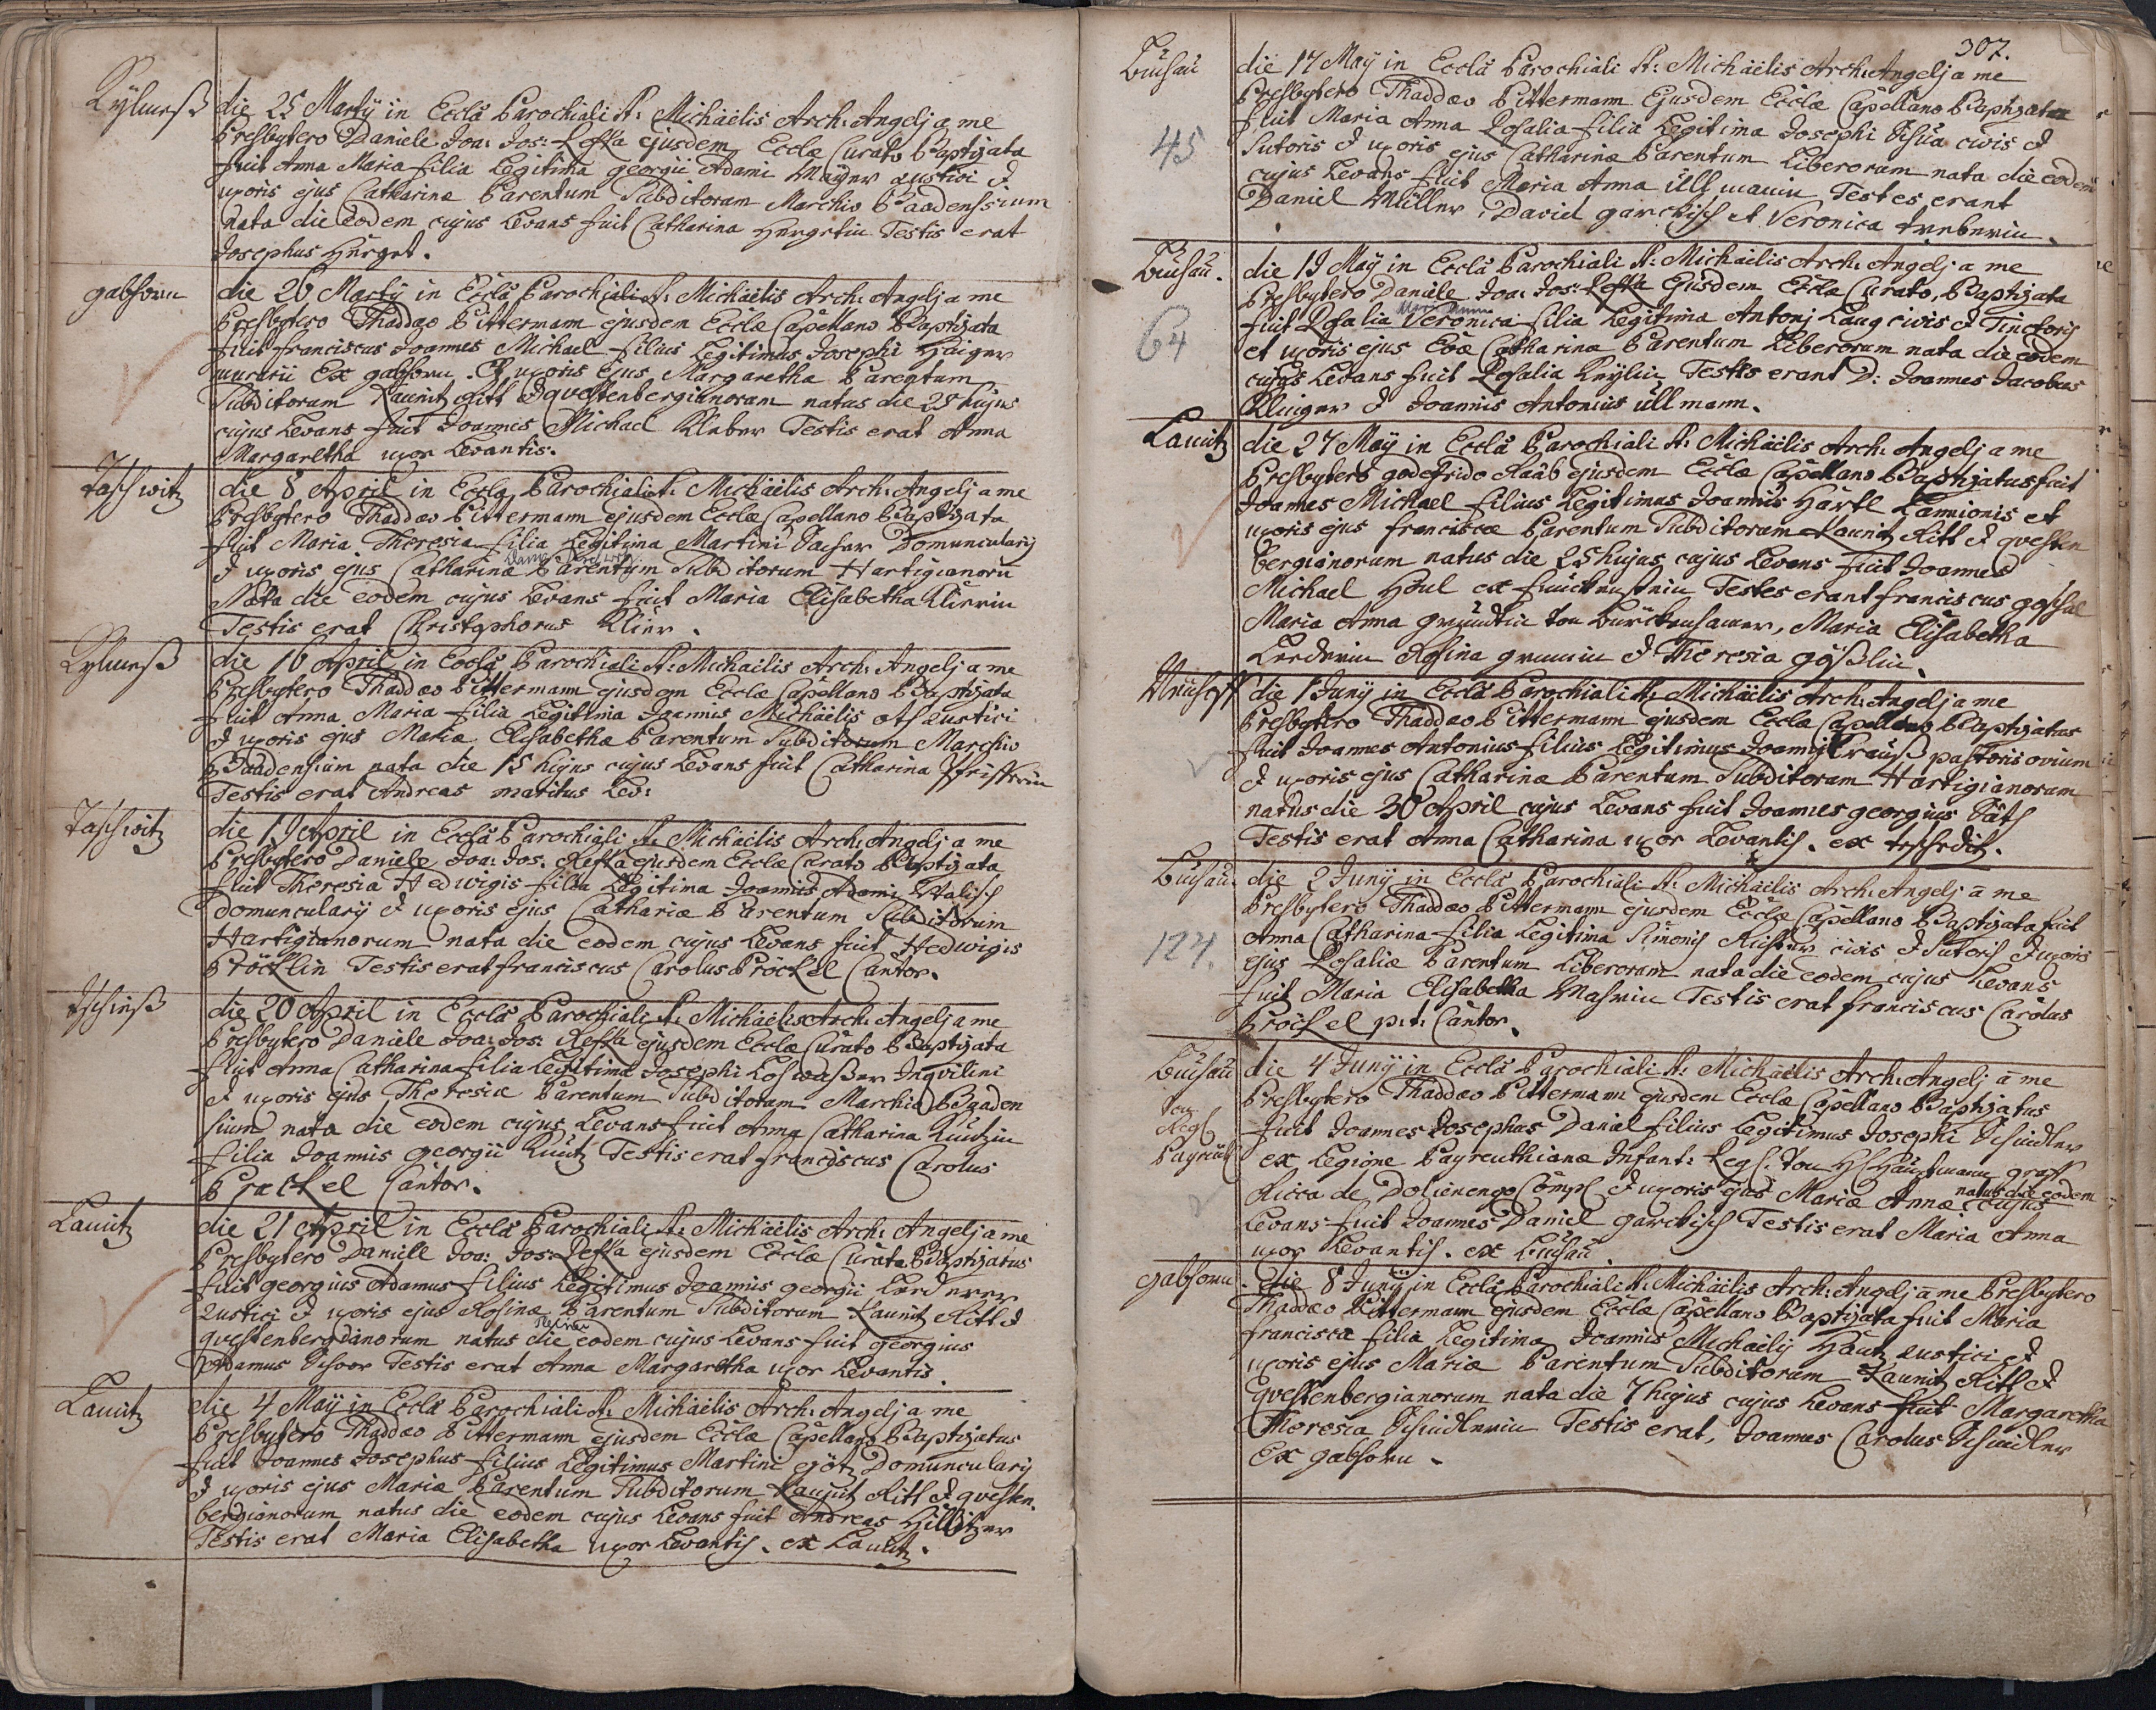 die 25 Martÿ in Eccla Parochiali S: Michaëlis Arch: Angelj a me
Presbytero Daniele Joa: Jos: Refka ejusdem Ecclæ Curato Baptizata
fuit Anna Maria filia Legitima georgii Adami Mayer rustici &
uxoris ejus Catharinæ Parentum Subditorum Marchio Baadensium
nata die eodem cujus Levans fuit Catharina Hergetin Testis erat
Josephus Herget.
gabhorn
die 26 Martÿ in Eccla Parochiali S: Michaëlis Arch: Angelj a me
Presbytero Thaddæo Pittermann ejusdem Ecclæ Capellano Baptizata
fuit franciscus Joannes Michael filius Legitimus Josephi
murarii Ex gabhorn & uxoris ejus Margaretha Parentum
Subditorum Kaunitz Ritt & qvestenbergianorum natus die 25 hujus
cujus Levans fuit Joannes Michael Kleber Testis erat Anna
Margaretha uxor Levantis.
Taschwitz
die 8 April in Eccla Parochiali S: Michaëlis Arch: Angelj a me
Presbytero Thaddæo Pittermann ejusdem Ecclæ Capellano Baptizata
fuit Maria Theresia filia Legitima Martini Domuncularÿ
& uxoris ejus Catharinæ Parentum Subditorum Hartigianoru
Nata die eodem cujus Levans fuit Maria Elisabetha Klierin
Testis erat Christophorus Klier.
die 16 April in Eccla Parochiali S: Michaëlis Arch: Angelj a me
Presbytero Thaddæo Pittermann ejusdem Ecclæ Capellano Baptizata
fuit Anna Maria filia Legitima Joannis Michaëlis rustici
& uxoris ejus Mariæ Elisabethæ Parentum Subditorum Marchio
Baadensium nata die 15 hujus cujus Levans fuit Catharina
Testis erat Andreas maritus Lev:
Taschwitz
die 19 April in Eccla Parochiali S: Michaëlis Arch: Angelj a me
Presbytero Daniele Joa: Jos: Refka ejusdem Ecclæ Curato Baptizata
fuit Theresia Hedwigis filia Legitima Joannis Adami Walisch
Domuncularÿ & uxoris ejus Cathariæ Parentum Subditorum
Hartigianorum nata die eodem cujus Levans fuit Hedwigis
Pröcklin Testis erat franciscus Carolus Pröckel Cantor.
die 20 April in Eccla Parochiali S: Michaëlis Arch: Angelj a me
Presbytero Daniele Joa: Jos: Refka ejusdem Ecclæ Curato Baptizata
fuit Anna Catharina filia Legitima Josephi Loswaßer Inqvilini
& uxoris ejus Theresiæ Parentum Subditorum Marchio Baaden
sium nata die eodem cujus Levans fuit Anna Catharina Kuntzin
filia Joannis georgii Kuntz Testis erat franciscus Carolus
Prackel Cantor.
Launitz
die 21 April in Eccla Parochiali S: Michaëlis Arch: Angelj a me
Presbytero Daniele Joa: Jos: Refka ejusdem Ecclæ Curato Baptizatus
fuit georgius Adamus filius Legitimus Joannis georgii Lerderer
Rustici & uxoris ejus Rosinæ Parentum Subditorum Kaunitz Ritt &
qvestenbergianorum natus die eodem cujus Levans fuit georgius
Adamus Testis erat Anna Margaretha uxor Levantis.
Launitz
die 4 Maÿ in Eccla Parochiali S: Michaëlis Arch: Angelj a me
Presbytero Thaddæo Pittermann ejusdem Ecclæ Capellano Baptizatus
fuit Joannes Josephus filius Legitimus Martini Domuncularÿ
& uxoris ejus Mariæ Parentum Subditorum Kaunitz Ritt & qvesten
bergianorum natus die eodem cujus Levans fuit Andreas
Testis erat Maria Elisabetha uxor Levantis. ex Launitz.
307.
Luchau
45
die 17 Maÿ in Eccla Parochiali S: Michaëlis Arch: Angelj a me
Presbytero Thaddæo Pittermann Ejusdem Ecclæ Capellano Baptizata
fuit Maria Anna Rosalia filia Legitima Josephi civis &
Sutoris & uxoris ejus Catharinæ Parentum Liberorum nata die eodem
cujus Levans fuit Maria Anna Üllmann Testes erant
Daniel Müller, David garckisch et Veronica
Luchau.
64
die 19 Maÿ in Eccla Parochiali S: Michaëlis Arch: Angelj a me
Presbytero Daniele Joa: Jos: Refka Ejusdem Ecclæ Curato, Baptizata
fuit Rosalia Veronica filia Legitima Antonj Lang civis & Tinctoris
et uxoris ejus Evæ Catharinæ Parentum Liberorum nata die eodem
cujus Levans fuit Rosalia Testis erant D: Joannes Jacobus
Klinger & Joannis Antonius Üllmann.
Launitz
die 27 Maÿ in Eccla Parochiali S: Michaëlis Arch: Angelj a me
Presbytero godefrido Raab ejusdem Ecclæ Capellano Baptizatus fuit
Joannes Michael filius Legitimus Joannis Härtl Lannionis et
uxoris ejus franciscæ Parentum Subditorum Kaunitz Ritt & qvesten
bergianorum natus die 25 hujus cujus Levans fuit Joannes
Michael ex Testes erant franciscus
Maria Anna von, Maria Elisabetha
Lerderin Rosina & Theresia
die 1 Junÿ in Eccla Parochiali S: Michaëlis Arch: Angelj a me
Presbytero Thaddæo Pittermann ejusdem Ecclæ Capellano Baptizatus
fuit Joannes Antonius filius Legitimus Joannis Krauß pastoris ovium
& uxoris ejus Catharinæ Parentum Subditorum Hartigianorum
natus die 30 April cujus Levans fuit Joannes georgius
Testis erat Anna Catharina uxor Levantis. ex
Luchau.
124.
die 2 Junÿ in Eccla Parochiali S: Michaëlis Arch: Angelj a me
Presbytero Thaddæo Pittermann ejusdem Ecclæ Capellano Baptizata fuit
Anna Catharina filia Legitima Simonis Richter civis & Sutoris & uxoris
ejus Rosaliæ Parentum Liberorum nata die eodem cujus Levans
fuit Maria Elisabetha Testis erat franciscus Carolus
Pröckel p:t: Cantor.
Luchau
die 4 Junÿ in Eccla Parochiali S: Michaëlis Arch: Angelj a me
Presbytero Thaddæo Pittermann ejusdem Ecclæ Capellano Baptizatus
fuit Joannes Josephus Danial filius Legitimus Josephi Schindler
ex Legione Payreuthianæ Infant: Reg: von H: Hauptmann graff
Ricca de Dolienengo Comp: & uxoris ejus Mariæ Annæ natus die eodem cujus
Levans fuit Joannes Daniel garckisch Testis erat Maria Anna
uxor Levantis. ex Luchau.
gabhorn
die 8 Junÿ in Eccla Parochiali S: Michaëlis Arch: Angelj a me Presbytero
Thaddæo Pittermann ejusdem Ecclæ Capellano Baptizata fuit Maria
francisca filia Legitima Joannis Michaëlis Hantz rustici &
uxoris ejus Mariæ Parentum Subditorum Kaunitz Ritt &
Qvestenbergianorum nata die 7 hujus cujus Levans fuit Margaretha
Theresia Schindlerin Testis erat, Joannes Carolus Schindler
Ex gabhorn.